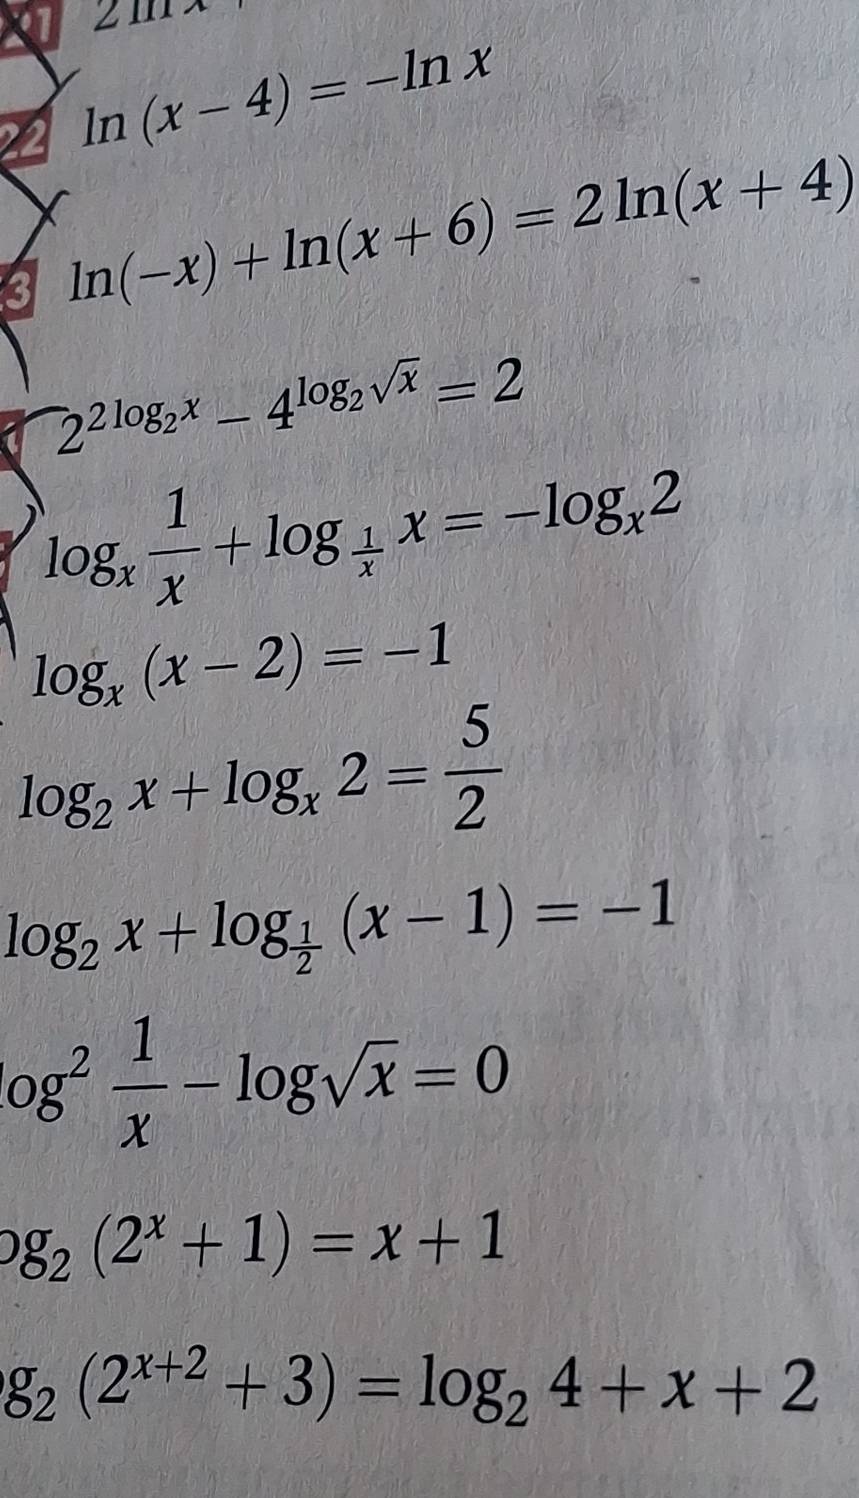 22 ln (x − 4) = −ln x
3 ln(−x) + ln(x + 6) = 2 ln(x + 4)
2^{2 log₂ x} − 4^{log₂ √x} = 2
logₓ 1/x + log_{1/x} x = −logₓ 2
logₓ (x − 2) = −1
log₂ x + logₓ 2 = 5/2
log₂ x + log_{1/2} (x − 1) = −1
log² 1/x − log √x = 0
og₂ (2^x + 1) = x + 1
g₂ (2^{x+2} + 3) = log₂ 4 + x + 2